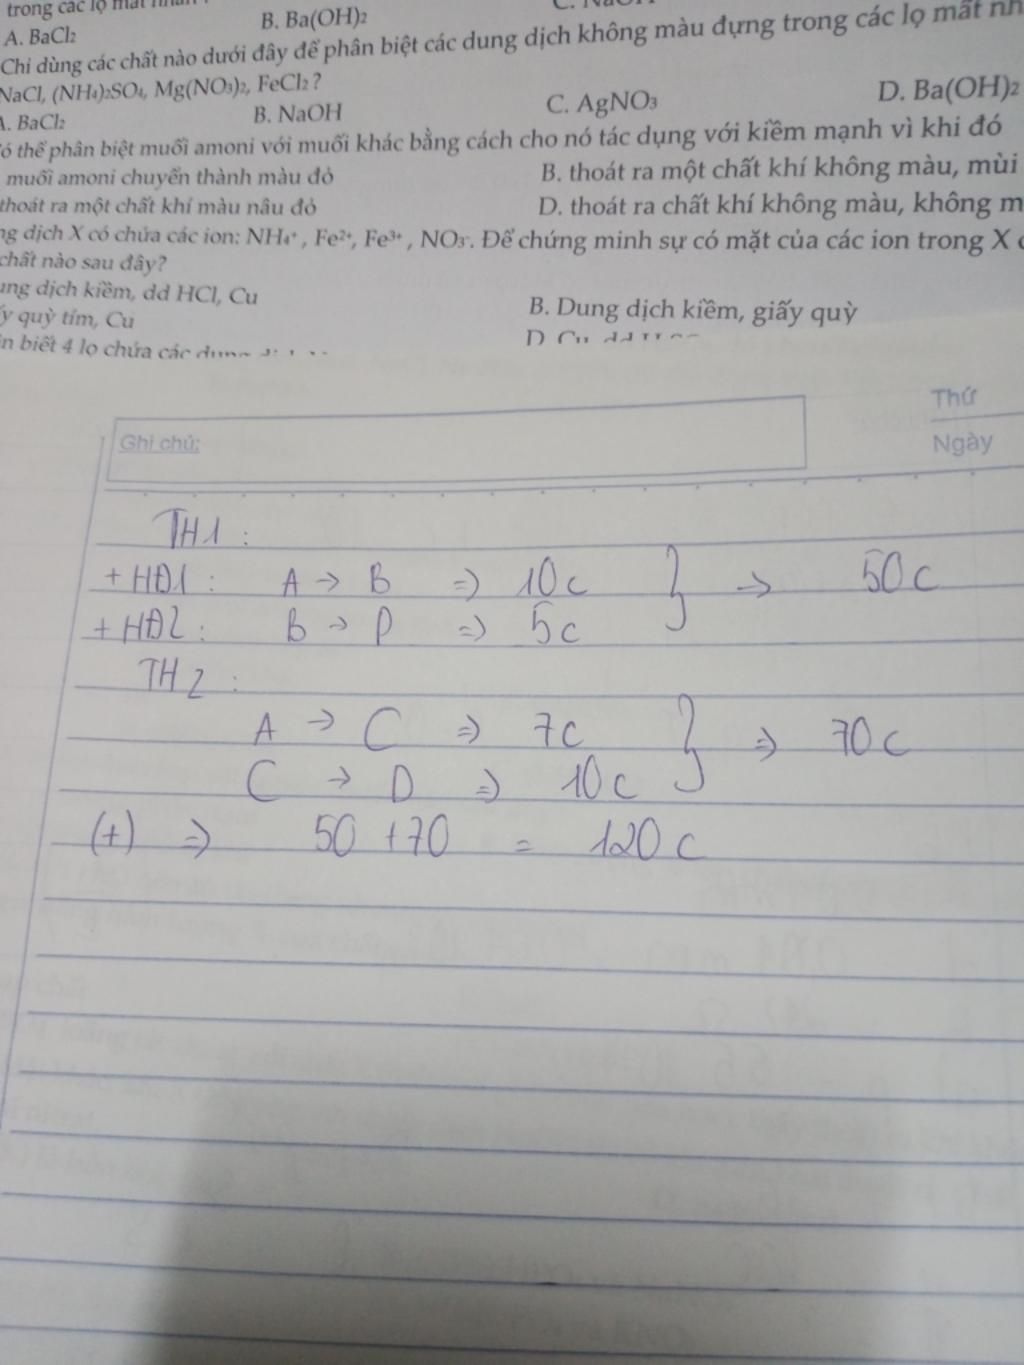 trong các lọ mất nhãn
A. BaCl₂ B. Ba(OH)₂
Chỉ dùng các chất nào dưới đây để phân biệt các dung dịch không màu đựng trong các lọ mất nh
NaCl, (NH₄)₂SO₄, Mg(NO₃)₂, FeCl₂ ?
A. BaCl₂ B. NaOH C. AgNO₃ D. Ba(OH)₂
ó thể phân biệt muối amoni với muối khác bằng cách cho nó tác dụng với kiềm mạnh vì khi đó
muối amoni chuyển thành màu đỏ B. thoát ra một chất khí không màu, mùi
thoát ra một chất khí màu nâu đỏ D. thoát ra chất khí không màu, không m
ng dịch X có chứa các ion: NH₄⁺ , Fe²⁺, Fe³⁺ , NO₃⁻. Để chứng minh sự có mặt của các ion trong X
chất nào sau đây?
ung dịch kiềm, dd HCl, Cu B. Dung dịch kiềm, giấy quỳ
y quỳ tím, Cu
n biết 4 lọ chứa các
Thứ
Ghi chú:
Ngày
TH1 :
+ HĐ1 : A → B ⇒ 10c } → 50c
+ HĐ2 : B → D ⇒ 5c
TH2 :
A → C ⇒ 7c } ⇒ 70c
C → D ⇒ 10c
(+) ⇒ 50 + 70 = 120 c